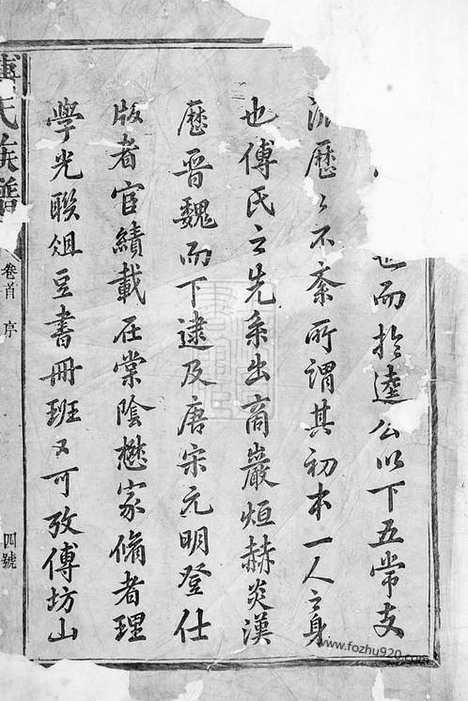 而於逵公以下五常支
派歷歷不紊所謂其初本一人之身
也傅氏之先系出商巖烜赫炎漢
歷晉魏而下逮及唐宋元明登仕
版者宦績載在棠陰懋家脩者理
學光聯俎豆書冊班班可攷傅坊山
傅氏族譜
卷首 序
四號
www.fozhu920.com